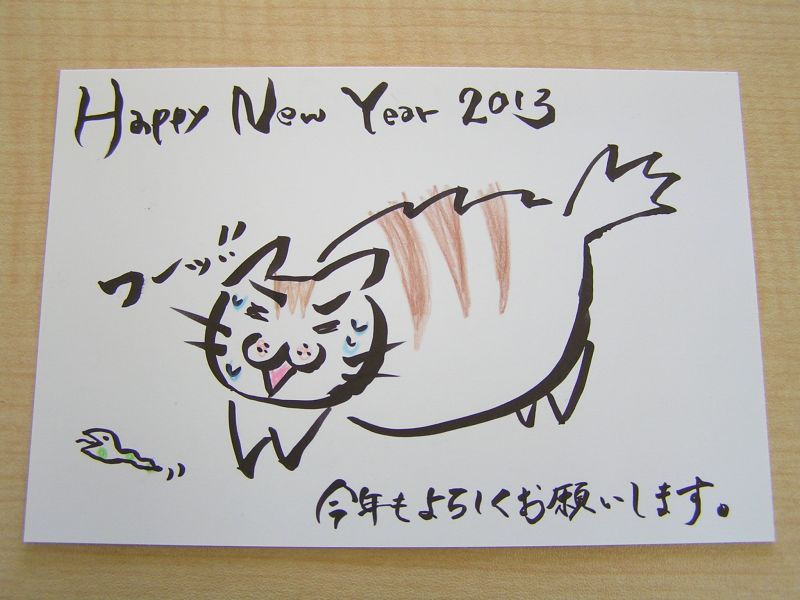 Happy New Year 2013
ワーッ!!
今年もよろしくお願いします。